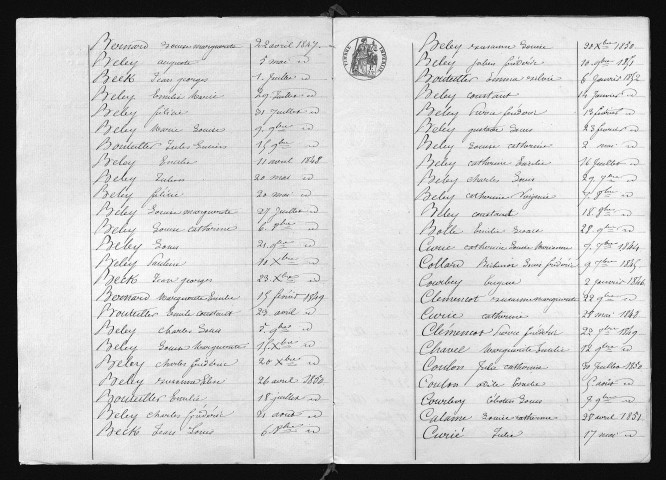 Bernard Louise Marguerite 22 avril 1847
Beley auguste 5 mai id
Beck Jean georges 1 Juillet id
Beley Emilie Marie 29 Juillet id
Beley félicie 31 Juillet id
Beley Marie Louise 9 9bre id
Bouteiller Jules Lucien 15 9bre id
Beley Emilie 11 avril 1848
Beley Julien 20 mai id
Beley félicie 20 mai id
Beley Louise Marguerite 27 Juillet id
Beley Louise Catherine 6 8bre id
Beley Louis 21 9bre id
Beley Pauline 10 Xbre id
Beck Jean georges 23 Xbre id
Bernard Marguerite Emilie 15 février 1849
Bouteiller Emile Constant 23 avril id
Beley Charles Louis 5 9bre id
Beley Louise Marguerite 15 Xbre id
Beley Charles frédéric 20 Xbre id
Beley Suzanne Elise 26 avril 1850
Bouteiller Emilie 18 juillet id
Beley Charles frédéric 31 août id
Beck Jean Louis 6 8bre id
Beley Suzanne Louise 20 Xbre 1850
Beley Julien frédéric 10 9bre 1851
Bouteiller Emma 6 Janvier 1852
Beley Constant 14 Janvier id
Beley frédéric 13 février id
Beley gustave Louis 23 février id
Beley Louise Catherine 2 mai id
Beley Catherine Emilie 16 Juillet id
Beley Charles Louis 29 7bre id
Beley Catherine Virginie 7 8bre id
Beley Constant 18 8bre id
Bolle Emilie 28 9bre id
Curie Catherine Louise Marianne 7 9bre 1844
Collain Louis frédéric 9 9bre 1845
Courboy Eugene 2 janvier 1846
Clemencot Suzanne Marguerite 22 9bre id
Curie Catherine 28 mai 1848
Clemencot Pierre frédéric 22 9bre 1849
Chavee Marguerite Emilie 12 9bre id
Coulon Julie Catherine 30 Juillet 1850
Coulon 5 août id
Courboy Louis 8 9bre id
Calame Louise Catherine 28 avril 1851
Curié Julie 17 mai id